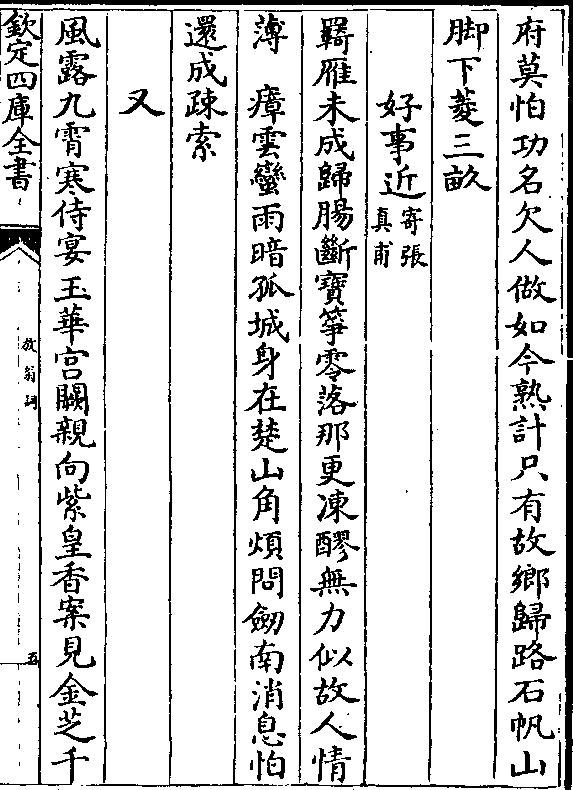 府莫怕功名欠人做如今熟計只有故鄉歸路石帆山
脚下菱三畝
好事近寄張真甫
羇雁未成歸腸斷寶箏零落那更凍醪無力似故人情
薄　瘴雲蠻雨暗孤城身在楚山角煩問劒南消息怕
還成疎索
又
風露九霄寒侍宴玉華宫闕親向紫皇香案見金芝千
欽定四庫全書
放翁詞
五